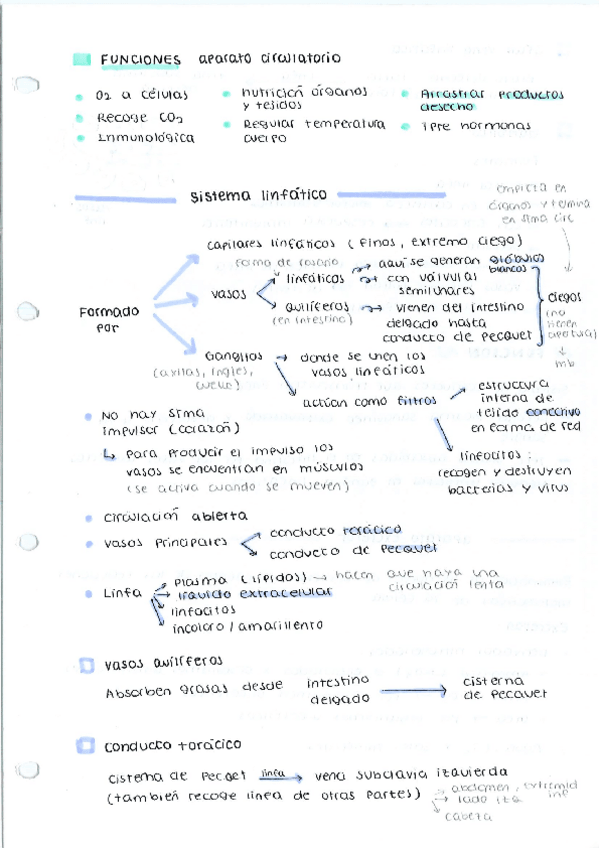 FUNCIONES aparato circulatorio
• O2 a células
• Recoge CO2
• Inmunológica
• nutrición órganos
y tejidos
• Regular temperatura
cuerpo
• Arrastrar productos
desecho
• Tpte hormonas
sistema linfático
empieza en
órganos y termina
en stma circ
Formado
por
capilares linfáticos (finos, extremo ciego)
forma de rosario
vasos
linfáticos
aquí se generan glóbulos
blancos
con válvulas
semilunares
quilíferos
(en intestino)
vienen del intestino
delgado hasta
conducto de Pecquet
ciegos
(no
tienen
apertura)
mb
Ganglios
(axilas, ingles,
cuello)
donde se unen los
vasos linfáticos
actúan como filtros
estructura
interna de
tejido conectivo
en forma de red
linfocitos:
recogen y destruyen
bacterias y virus
• No hay stma
impulsor (corazón)
↳ Para producir el impulso los
vasos se encuentran en músculos
(se activa cuando se mueven)
• circulación abierta
• vasos principales
conducto torácico
conducto de Pecquet
• Linfa
plasma (lípidos) → hacen que haya una
circulación lenta
líquido extracelular
linfocitos
incoloro/amarillento
vasos quilíferos
Absorben grasas desde intestino
delgado
cisterna
de Pecquet
conducto torácico
cisterna de Pecqet linfa → vena subclavia izquierda
(también recoge linfa de otras partes)
→ abdomen, extremid
inf
→ lado izq
→ cabeza